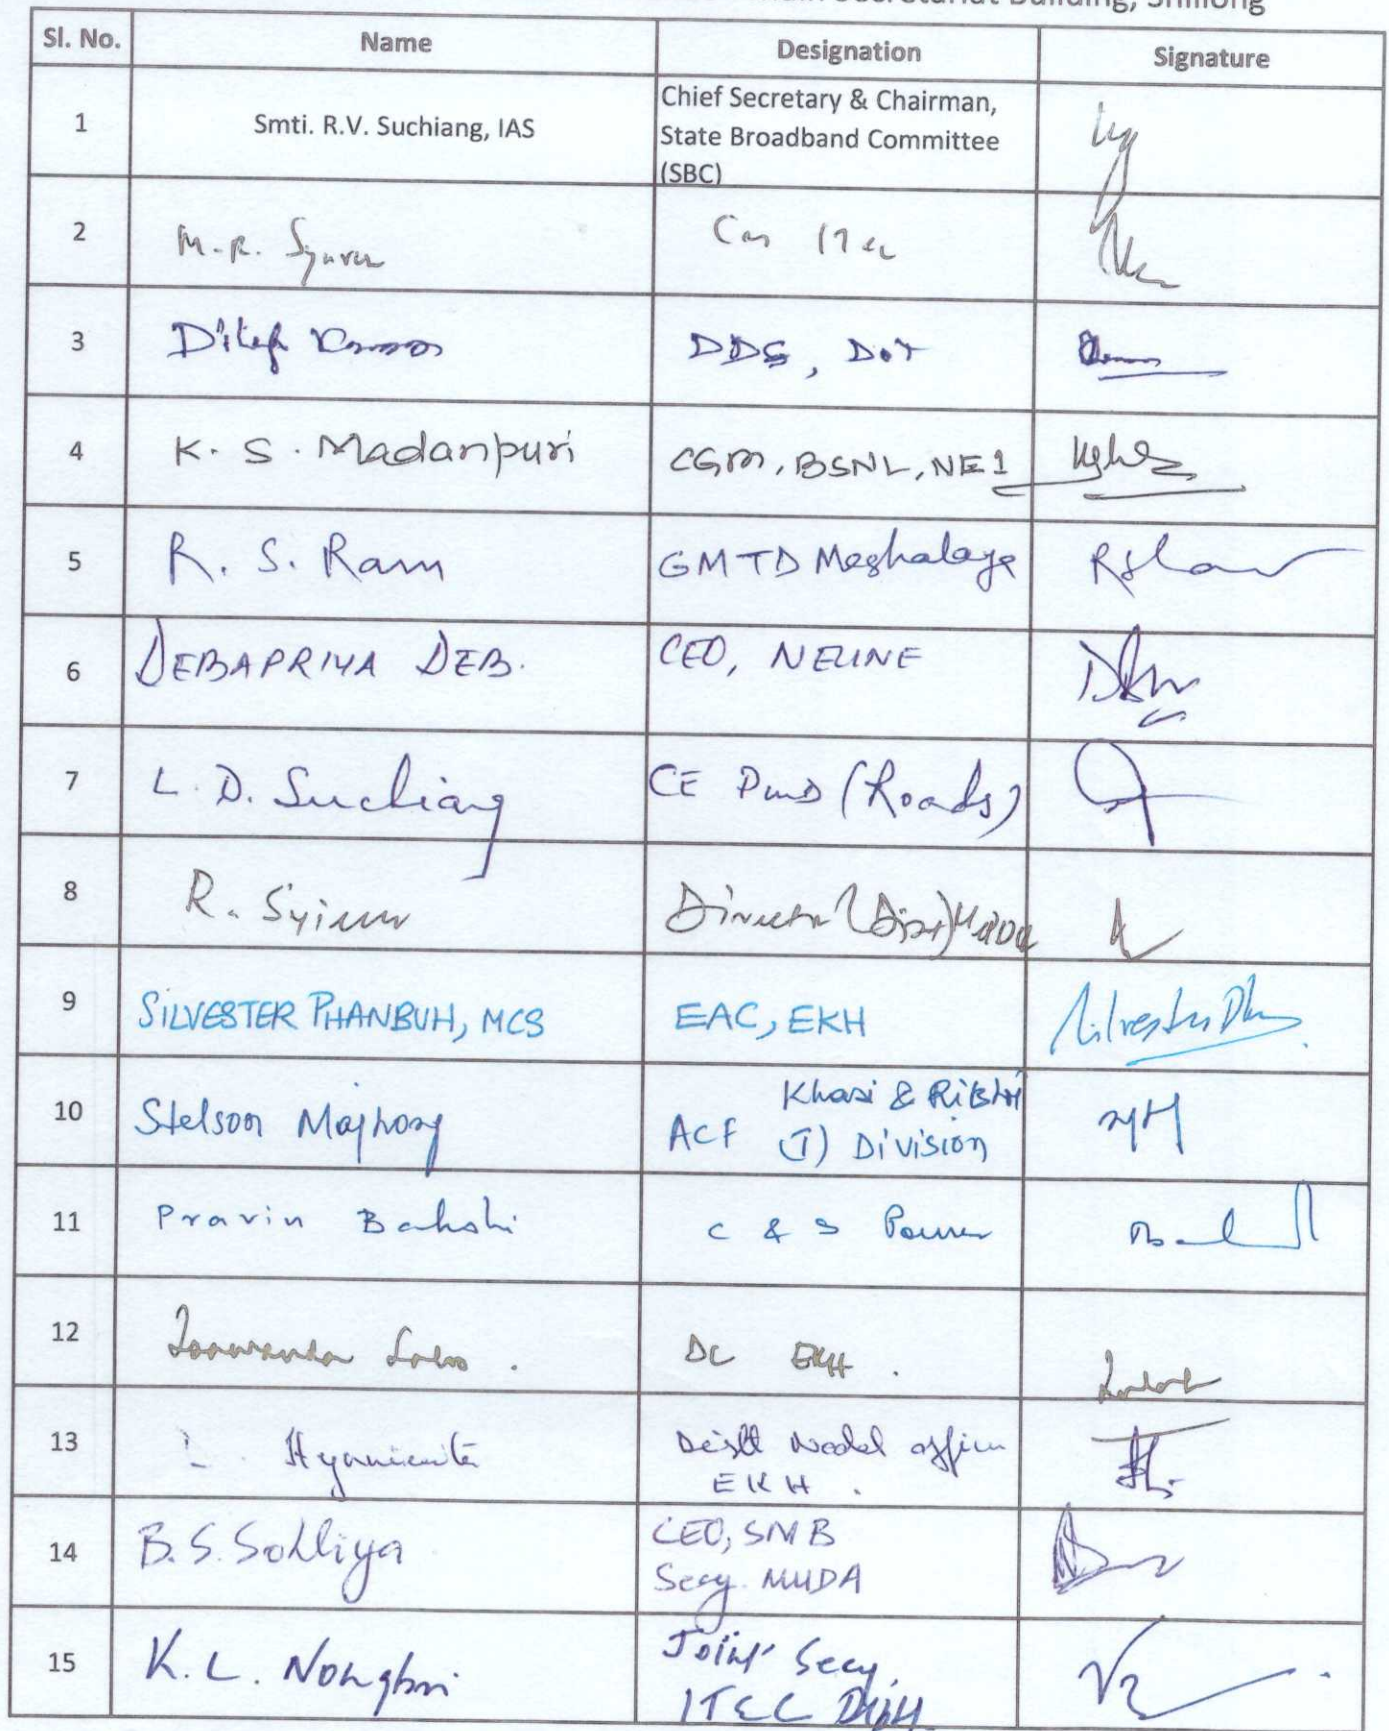 Main Secretariat Building, Shillong
Sl. No. Name Designation Signature
1 Smti. R.V. Suchiang, IAS Chief Secretary & Chairman,
State Broadband Committee
(SBC)
2 M.R. Synrem
3 Dilip Kumar DDG, DoT
4 K. S. Madanpuri CGM, BSNL, NE1
5 R. S. Ram GMTD Meghalaya
6 DEBAPRIYA DEB. CEO, NELINE
7 L.D. Suchiang CE PWD (Roads)
8 R. Syiem Director (Dist)
9 SILVESTER PHANBUH, MCS EAC, EKH
10 Stelson Majhong ACF Khasi & Ribhoi
(T) Division
11 Pravin Bakshi C & S Power
12 DC EKH.
13 Distt Nodal officer
EKH.
14 B.S. Sohliya CEO, SMB
Secy. MUDA
15 K.L. Nongbri Joint Secy.
IT&C Deptt.